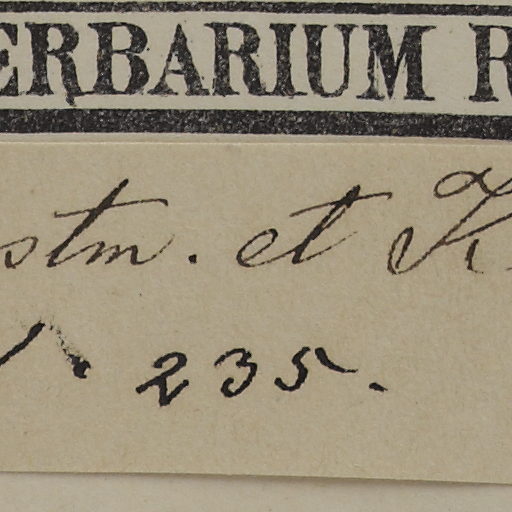 ERBARIUM R
stm. et K
. 235.